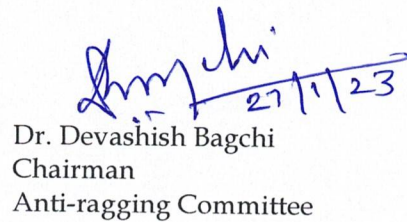 27/1/23
Dr. Devashish Bagchi
Chairman
Anti-ragging Committee